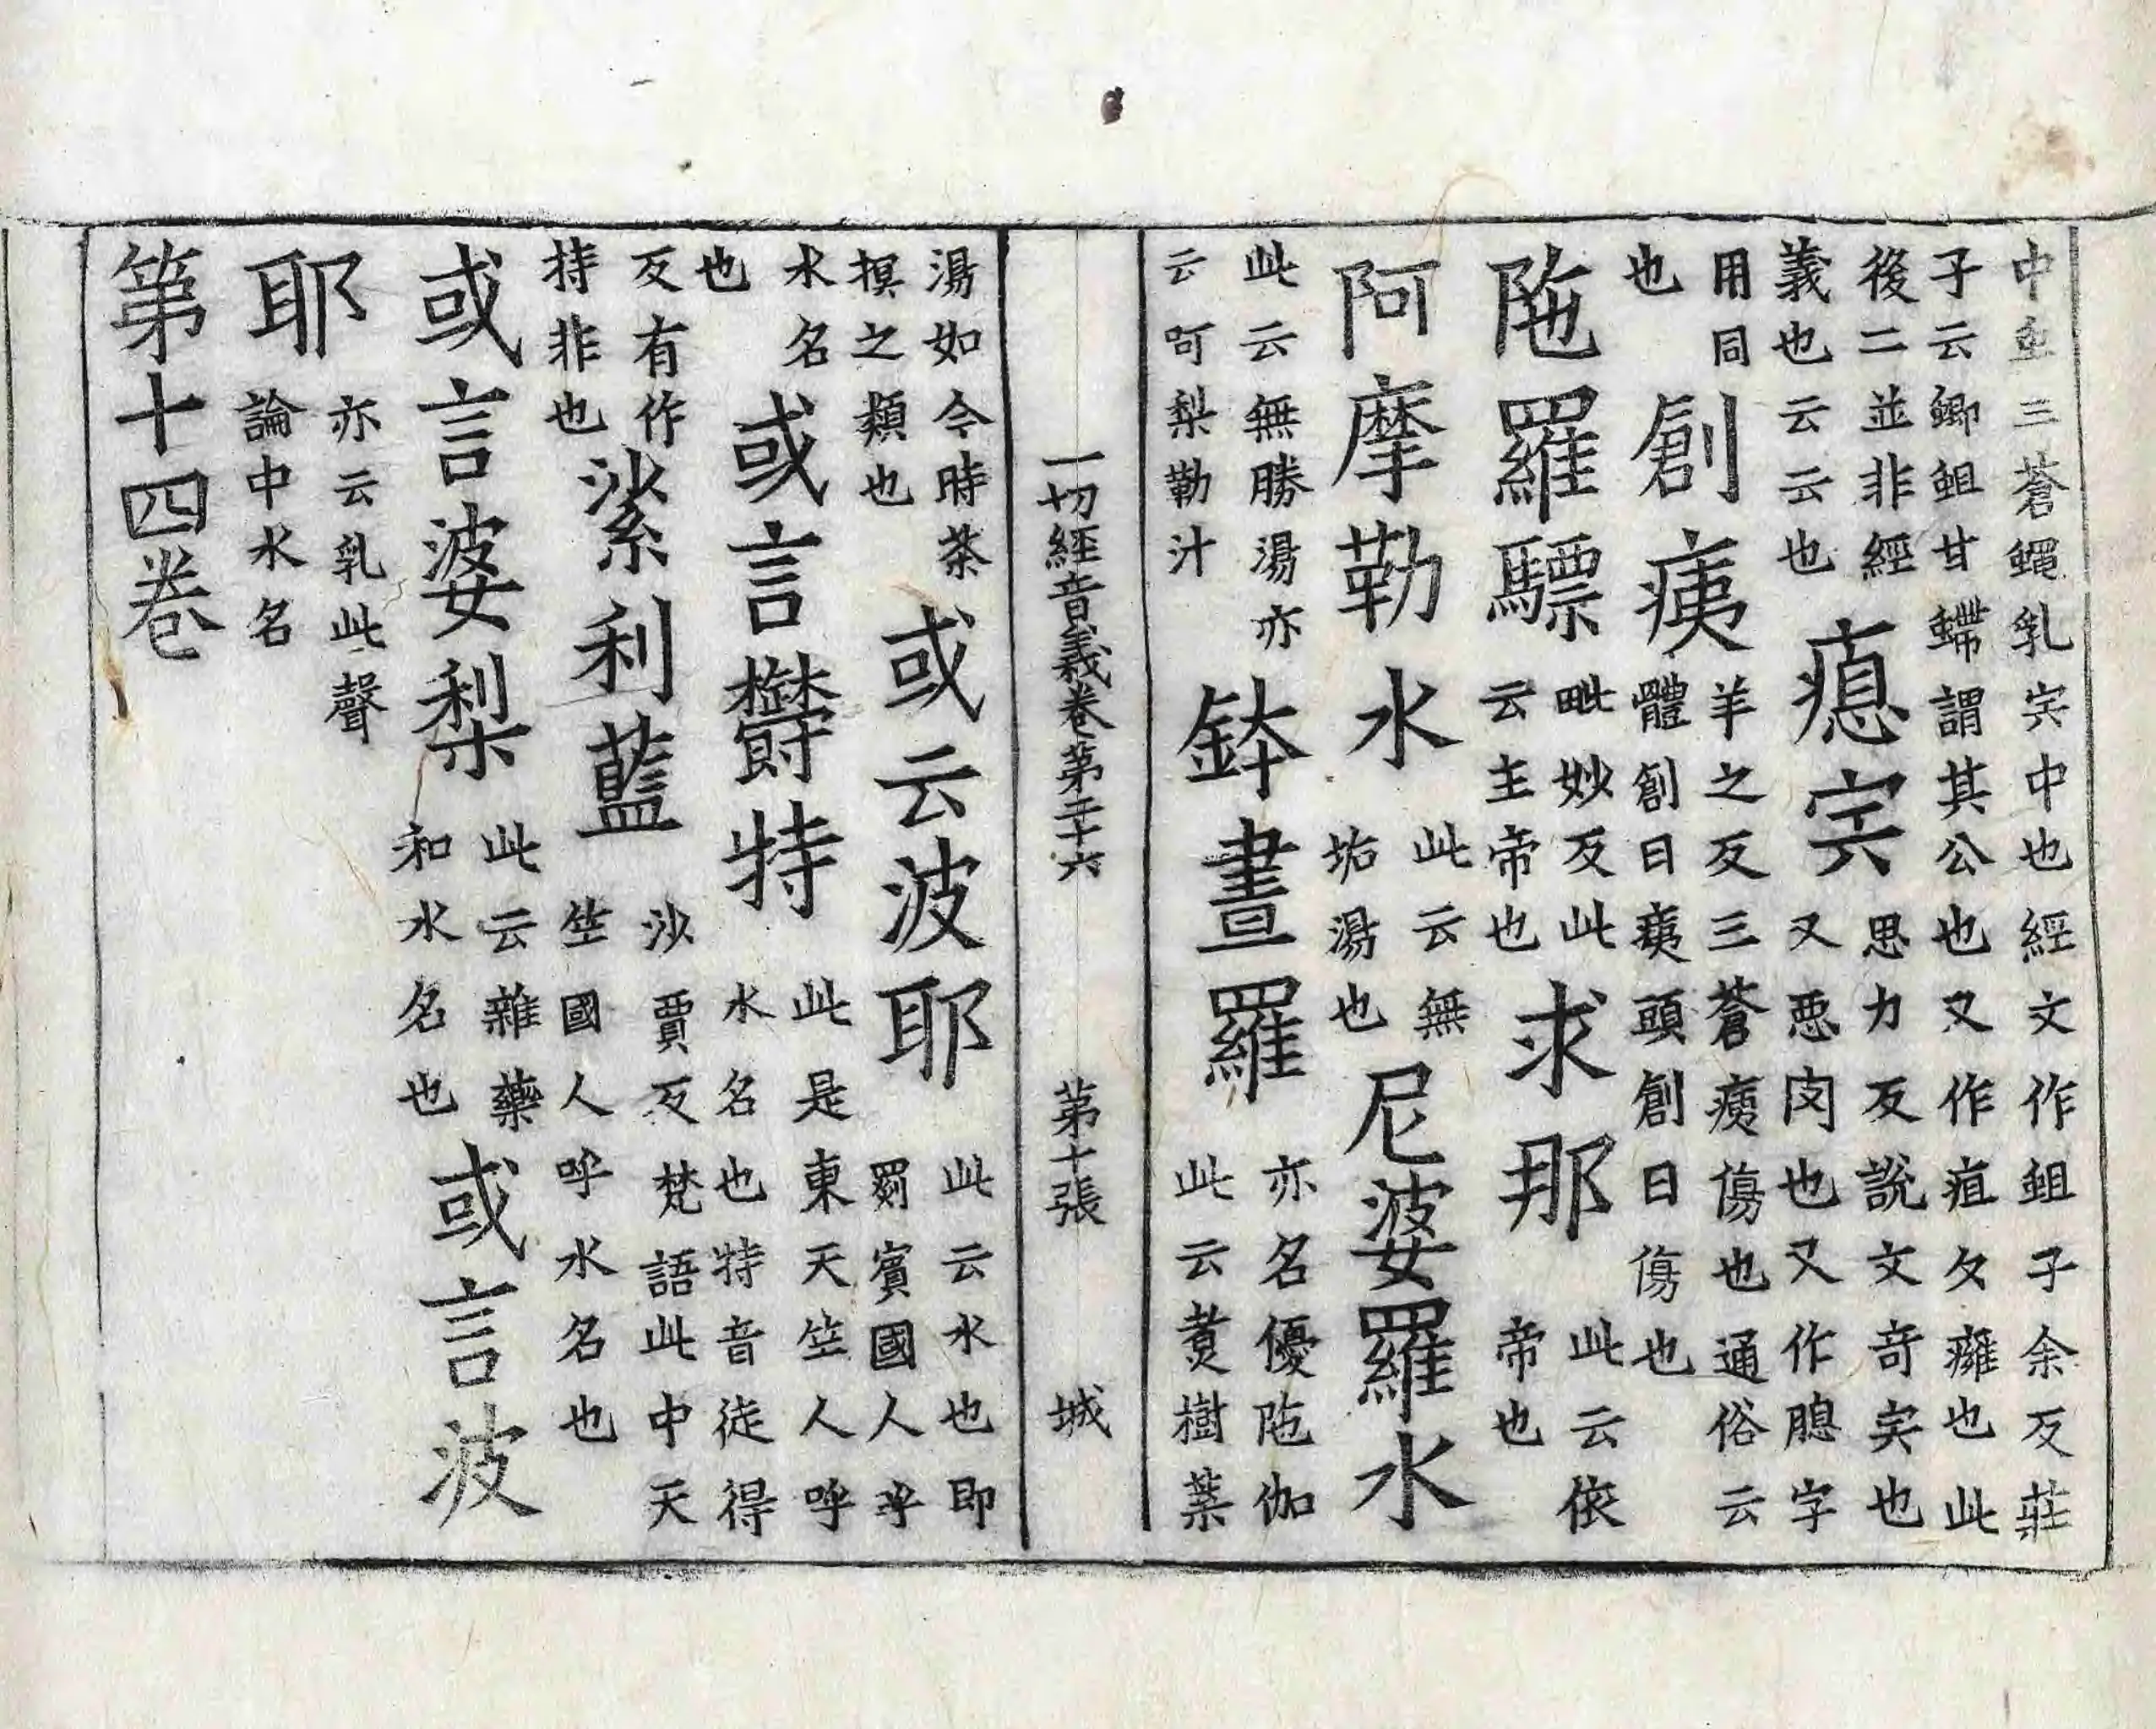 中虫三蒼蠅乳宍中也經文作蛆子余反莊
子云蝍蛆甘䗖謂其公也又作疽久癰也此
後二並非經
義也云云也
瘜宍
思力反說文奇宍也
又悪肉也又作䐖字
用同
也
創痍
羊之反三蒼痍傷也通俗云
體創曰痍頭創曰傷也
陁羅驃
毗妙反此
云主帝也
求那
此云依
帝也
阿摩勒水
此云無
垢湯也
尼婆羅水
此云無勝湯亦
云呵梨勒汁
鉢晝羅
亦名優陁伽
此云煑樹葉
一切經音義卷第二十六 第十張 城
湯如今時茶
摸之類也
或云波耶
此云水也即
罽賓國人乎
水名
也
或言欝特
此是東天竺人呼
水名也特音徒得
反有作
持非也
利藍
沙賈反梵語此中天
竺國人呼水名也
或言婆梨
此云雜藥
和水名也
或言波
耶
亦云乳此聲
論中水名
第十四卷